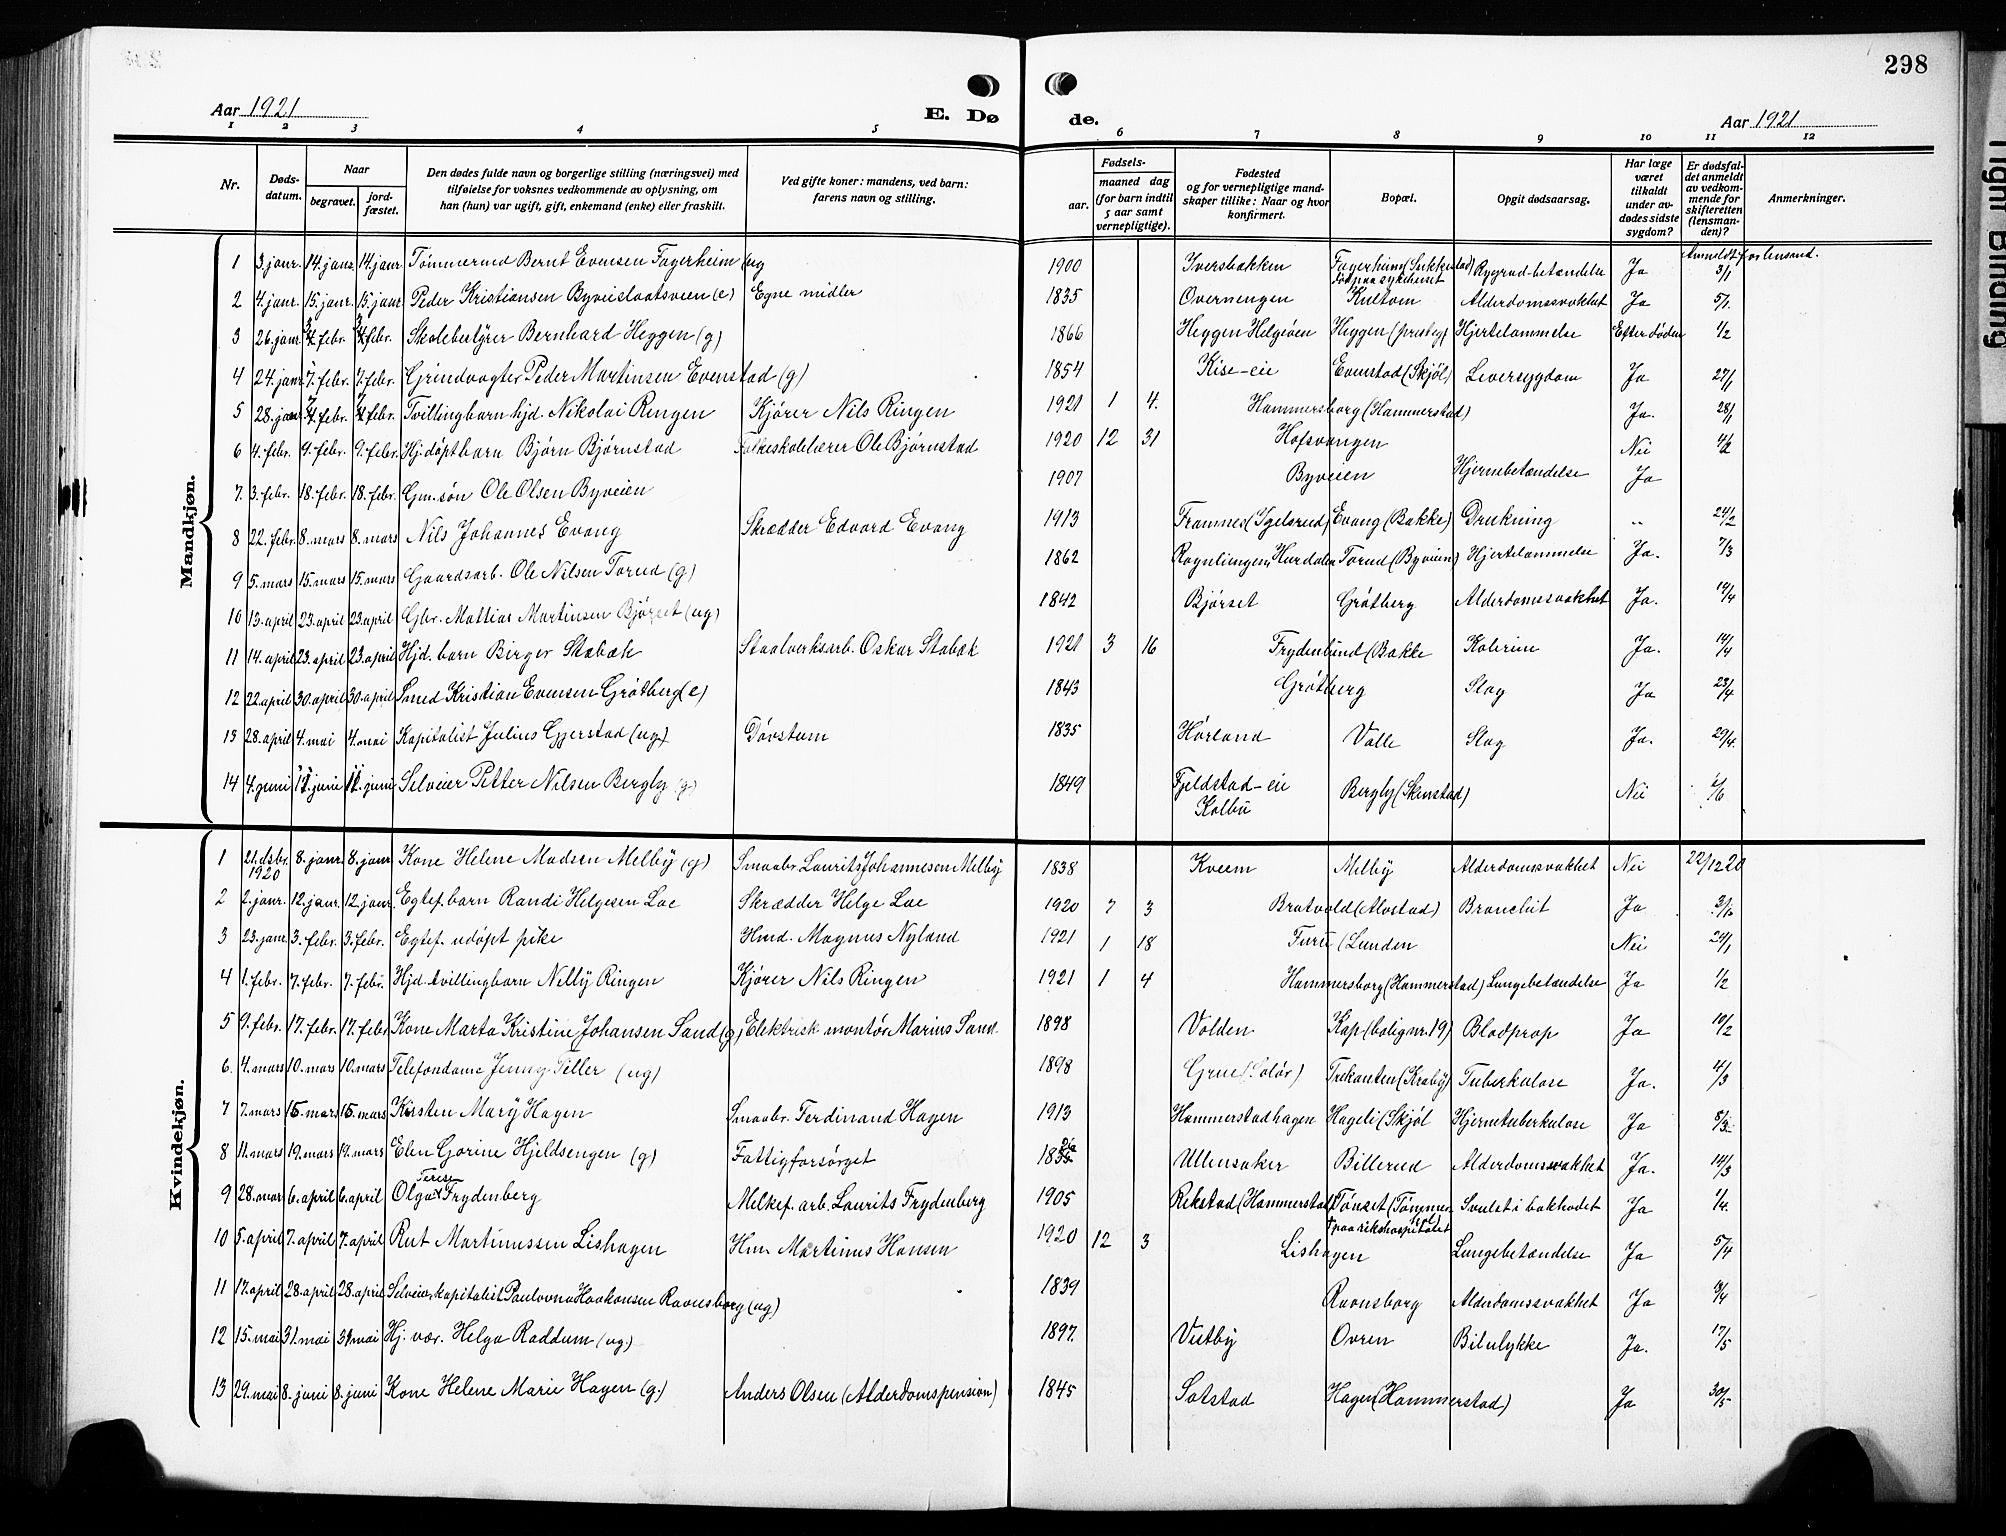 298
Aar 1921
E. Dø de.
Aar 1921
1 2 3 4 5 6 7 8 9 10 11 12
Nr.
Døds-
datum.
Naar
begravet.
jord-
fæstet.
Den dødes fulde navn og borgerlige stilling (næringsvei) med
tilføielse for voksnes vedkommende av oplysning, om
han (hun) var ugift, gift, enkemand (enke) eller fraskilt.
Ved gifte koner: mandens, ved barn:
farens navn og stilling.
Fødsels-
aar.
maaned dag
(for barn indtil
5 aar samt
vernepligtige).
Fødested
og for vernepligtige mand-
skaper tillike: Naar og hvor
konfirmert.
Bopæl.
Opgit dødsaarsag.
Har læge
været
tilkaldt
under av-
dødes sidste
sygdom?
Er dødsfal-
det anmeldt
av vedkom-
mende for
skifteretten
(lensman-
den)?
Anmerkninger.
Mandkjøn.
Anmeldt for lensmd.
1 3. janr. 14. janr. 14. janr. Tømmermd Bernt Evensen Fagerheim (ug 1900 Iversbakken Fagerheim (Sukkestad) Rygrad-betændelse Ja 3/1
Død paa sykehuset
2 4. janr. 15. janr. 15. janr. Peder Kristiansen Byveislaatsveen (e) Egne midler 1835 Overnengen Kultom Alderdomssvakhet Ja 5/1.
3 26. janr 4. febr. 4. febr. Skolebestyrer Bernhard Heggen (g) 1866 Heggen Helgøen Heggen (presteg) Hjertelammelse Efter døden 1/2
4 24. janr 7. febr. 7. febr. Grindvogter Peder Martinsen Evenstad (g) 1854 Kise-eie Evenstad (Skjøl) Leversygdom Ja 27/1
5 28. janr 4. febr. 4. febr. Tvillingbarn hjd. Nikolai Ringen Kjører Nils Ringen 1921 1 4. Hammersborg (Hammerstad) Ja. 28/1
6 4. febr. 9. febr. 9. febr. Hj.døpt barn Bjørn Bjørnstad Folkeskolelærer Ole Bjørnstad 1920 12 31 Hofsvangen Nei 4/2
7. 3. febr. 18. febr. 18. febr. Gm. søn Ole Olsen Byveien 1907 Byveien Hjernebetændelse Ja
8 22. febr. 8. mars 8. mars Nils Johannes Evang Skrædder Edvard Evang 1913 Framnes (Igelsrud) Evang (Bakke) Drukning „ 24/2
9 5. mars 15. mars 15. mars Gaardsarb. Ole Nilsen Torud (g) 1862 Rognliengen, Hurdalen Torud (Byveien) Hjertelammelse Ja. 7/3
10 13. april 23. april 23. april Gbr. Mathias Martinsen Bjørset (ug) 1842 Bjørset Grøtberg Alderdomssvakhet Ja. 14/4
11 14. april 23. april 23. april Hjd. barn Birger Stabæk Staalverksarb. Oskar Stabæk 1921 3 16 Frydenlund (Bakke Kolerine Ja. 14/4
12 22. april 30. april 30. april Smed Kristian Evensen Grøtberg (e) 1843 Grøtberg Slag Ja 23/4
13 28. april 4. mai 4. mai Kapitalist Julius Gjerstad (ug) Døvstum 1835 Hørland Valle Slag Ja. 29/4.
14 4. juni 11. juni 11. juni Selveier Petter Nilsen Bergby (g) 1849 Fjeldstad-eie Bergby (Skinstad) Nei /6
Kolbu
Kvindekjøn.
1 21. dsbr. 8. janr. 8. janr Kone Helene Madsen Melby (g) Smaabr. Laurits Johannesen Melby 1838 Kveem Melby Alderdomssvakhet Nei 22/12 20
1920
2 2. janr. 12. janr. 12. janr. Egtef. barn Randi Helgesen Loe Skrædder Helge Loe 1920 7 3 Bratvold (Alvstad) Bronchit Ja
3 23. janr 3. febr. 3. febr. Egtef. udøpt pike Hmd. Magnus Nyland 1921 1 18 Furu (Lunden Nei 24/1
4 1. febr. 7. febr. 7. febr. Hjd. tvillingbarn Nelly Ringen Kjører Nils Ringen 1921 1 4 Hammersborg (Hammerstad) Lungebetændelse Ja 1/2
5 9. febr. 17. febr. 17. febr Kone Marta Kristine Johansen Sand (g) Elektrisk montør Marius Sand. 1898 Volden Kap (bolig nr. 19) Blodprop Ja 12/2
6. 4. mars 10. mars 10. mars Telefondame Jenny Teller (ug) 1898 Grue (Solør) Trekanten (Kraby) Tuberkulose Ja. 4/3
7 7. mars 15. mars 15. mars Kirsten Mary Hagen Smaabr. Ferdinand Hagen 1913 Hammerstadhagen Hageli (Skjøl Hjernetuberkulose Ja 5/3
8 11. mars 19. mars 19. mars Elen Gorine Hjeldsengen (g) Fattigforsørget 1835 Ullensaker Billerud Alderdomssvakhet Ja. 14/3
9 28. mars 6. april 6. april Olga Terese Frydenberg Melkef. arb. Laurits Frydenberg 1905 Rekstad (Hammerstad) Tønset (Tømmer Svulst i bakhodet Ja 1/4.
† paa rikshospitalet
10 5. april 7. april 7. april Rut Martinussen Lishagen Hm. Martinus Hansen 1920 12 3 Lishagen Lungebetændelse Ja 5/4
11 17. april 28. april 28. april Selveier, kapitalist Paulovna Haakonsen Ravnsborg (ug) 1839 Ravnsborg Alderdomssvakhet Ja 18/4
12 15. mai 31. mai 31. mai Hj. vær. Helga Raddum (ug.) 1897. Vestby Ovren Bilulykke Ja. 17/5
13 29. mai 8. juni 8. juni Kone Helene Marie Hagen (g.) Anders Olsen (Alderdomspension) 1845 Sotstad Hagen (Hammerstad) Ja 30/5